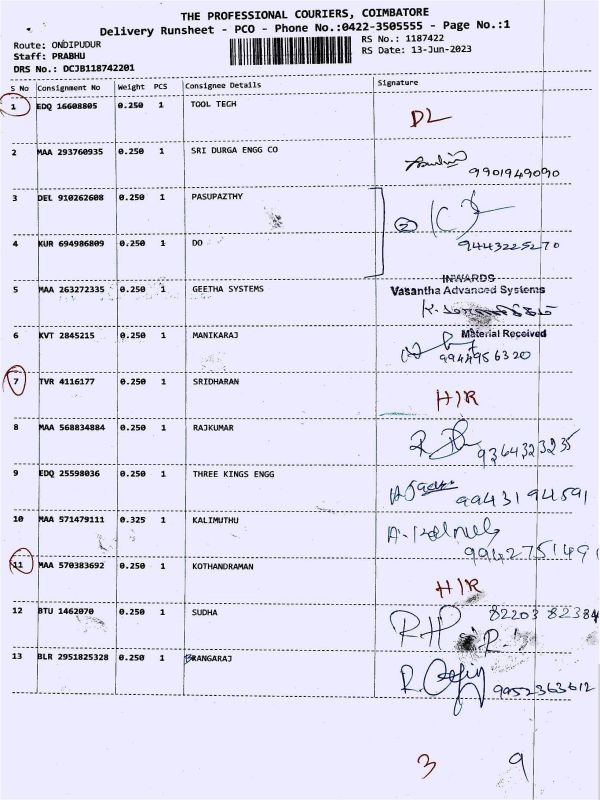 THE PROFESSIONAL COURIERS, COIMBATORE
Delivery Runsheet - PCO - Phone No.:0422-3505555 - Page No.:1
Route: ONDIPUDUR
Staff: PRABHU
DRS No.: DCJB118742201
RS No.: 1187422
RS Date: 13-Jun-2023
S No Consignment No Weight PCS Consignee Details Signature
1 EDQ 16608805 0.250 1 TOOL TECH DL
2 MAA 293760935 0.250 1 SRI DURGA ENGG CO 9901949090
3 DEL 910262608 0.250 1 PASUPAZTHY 2
4 KUR 694986809 0.250 1 DO 9443225270
INWARDS
Vasantha Advanced Systems
5 MAA 263272335 0.250 1 GEETHA SYSTEMS
Material Received
6 KVT 2845215 0.250 1 MANIKARAJ 9944956320
7 TVR 4116177 0.250 1 SRIDHARAN H/R
8 MAA 568834884 0.250 1 RAJKUMAR 9364323235
9 EDQ 25598036 0.250 1 THREE KINGS ENGG 9943194591
10 MAA 571479111 0.325 1 KALIMUTHU 994275149
11 MAA 570383692 0.250 1 KOTHANDRAMAN H/R
12 BTU 1462070 0.250 1 SUDHA 82203 82384
13 BLR 2951825328 0.250 1 RANGARAJ 9952363612
3 9